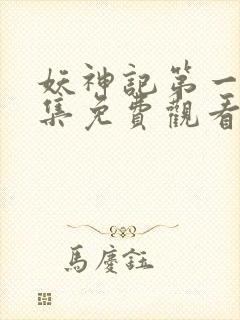 妖神記第一
集免費觀看
馬慶鈺